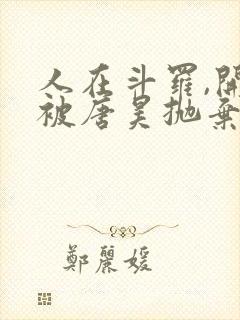 人在斗罗,開
被唐昊抛棄
鄭麗媛